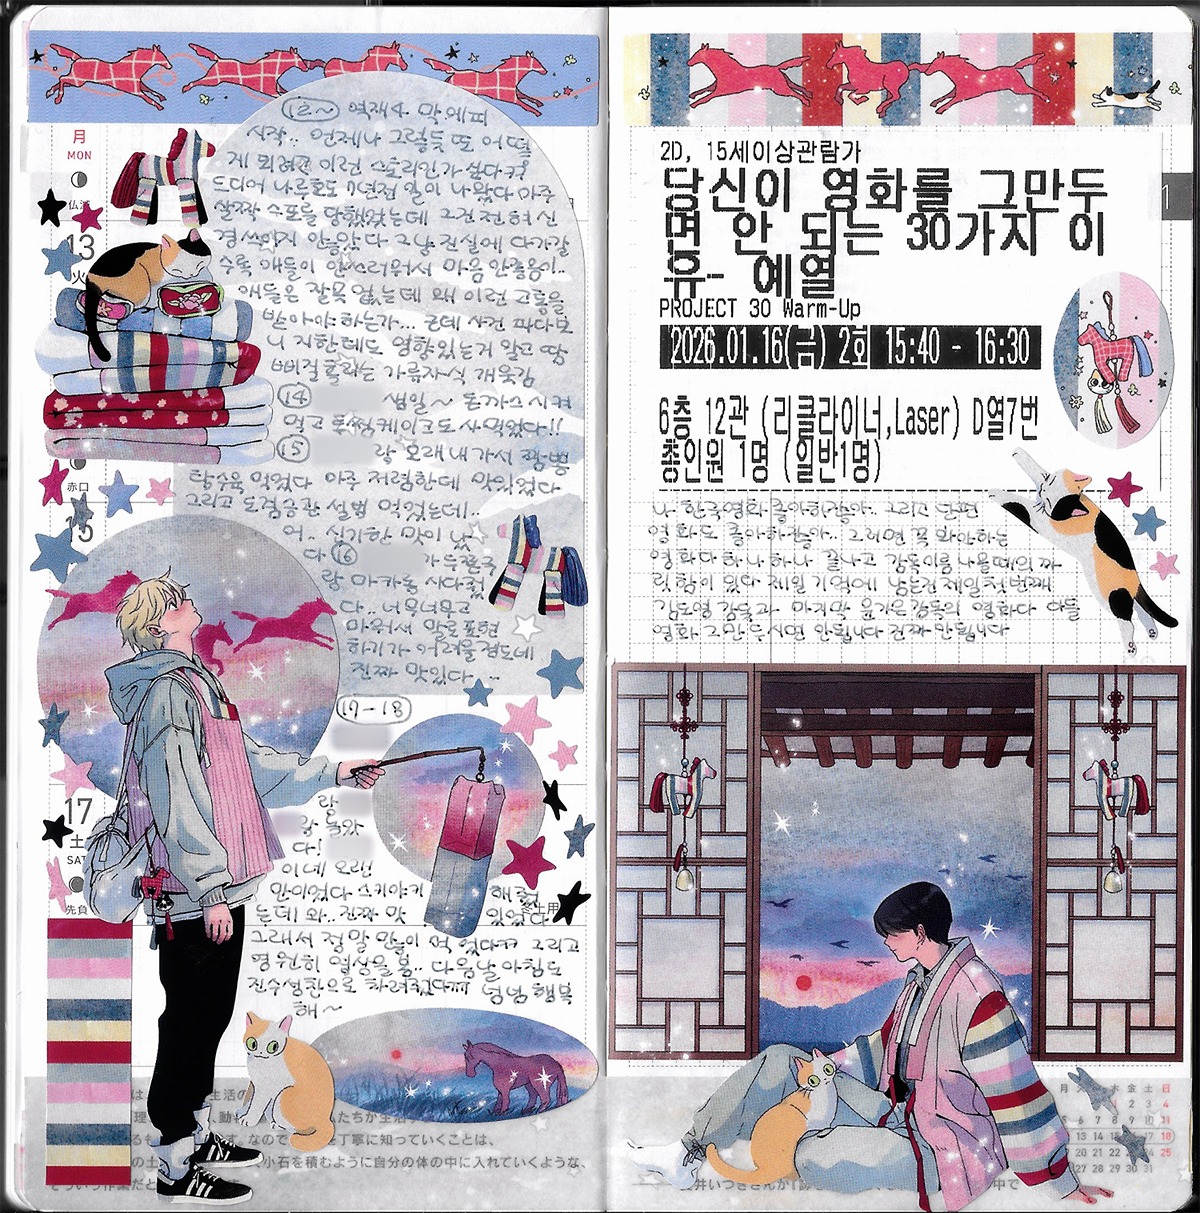 月
MON
13
火
赤口
15
17
土
SAT
先負
12~ 역재4 막에피
시작.. 언제나 그렇듯 또 어떻
게 되려고 이런 스토리인가 싶다ㅋㅋ
드디어 나루호도 7년전 일이 나왔다 아주
살짝 스포를 당했었는데 그건 전혀 신
경쓰이지 않았다 그냥 진실에 다가갈
수록 애들이 안쓰러워서 마음 안좋음이..
애들은 잘못 없는데 왜 이런 고통을
받아야하는가... 근데 사건 파다보
니 지한테도 영향있는거 알고 땀
삐질흘리는 가류자식 개웃김
14 생일~ 돈까스 시켜
먹고 투썸케이크도 사먹었다!!
15 랑 오래내가서 짬뽕
탕수육 먹었다 아주 저렴한데 맛있었다
그리고 도 설빙 먹었는데..
어.. 신기한 맛이 났
다 16
랑 마카롱 사다줬
다.. 너무너무고
마워서 말로표현
하기가 어려울정도네
진짜 맛있다..
17-18
랑
랑 놀았
다!
이네 오랜
만이었다 스키야키 해줬
는데 와.. 진짜 맛있었다
그래서 정말 많이 먹었다ㅋㅋ 그리고
영원히 열상을 봄.. 다음날 아침도
진수성찬으로 차려줬다ㅠㅠ 넘넘 행복
해~
2D, 15세이상관람가
당신이 영화를 그만두
면 안 되는 30가지 이
유- 예열
PROJECT 30 Warm-Up
2026.01.16(금) 2회 15:40 - 16:30
6층 12관 (리클라이너,Laser) D열7번
총인원 1명 (일반1명)
1
나 한국영화 좋아하잖아.. 그리고 단편
영화도 좋아하잖아.. 그러면 꼭 봐야하는
영화다 하나하나 끝나고 감독이름 나올때의 짜
릿함이 있다 제일 기억에 남는건 제일 첫번째
김도영 감독과 마지막 윤가은감독의 영화다 다들
영화 그만두시면 안됩니다 진짜 안됩니다
生活の
小石を積むように自分の体の中に入れていくような、
なので 丁寧に知っていくことは、
月 木 金 土 日